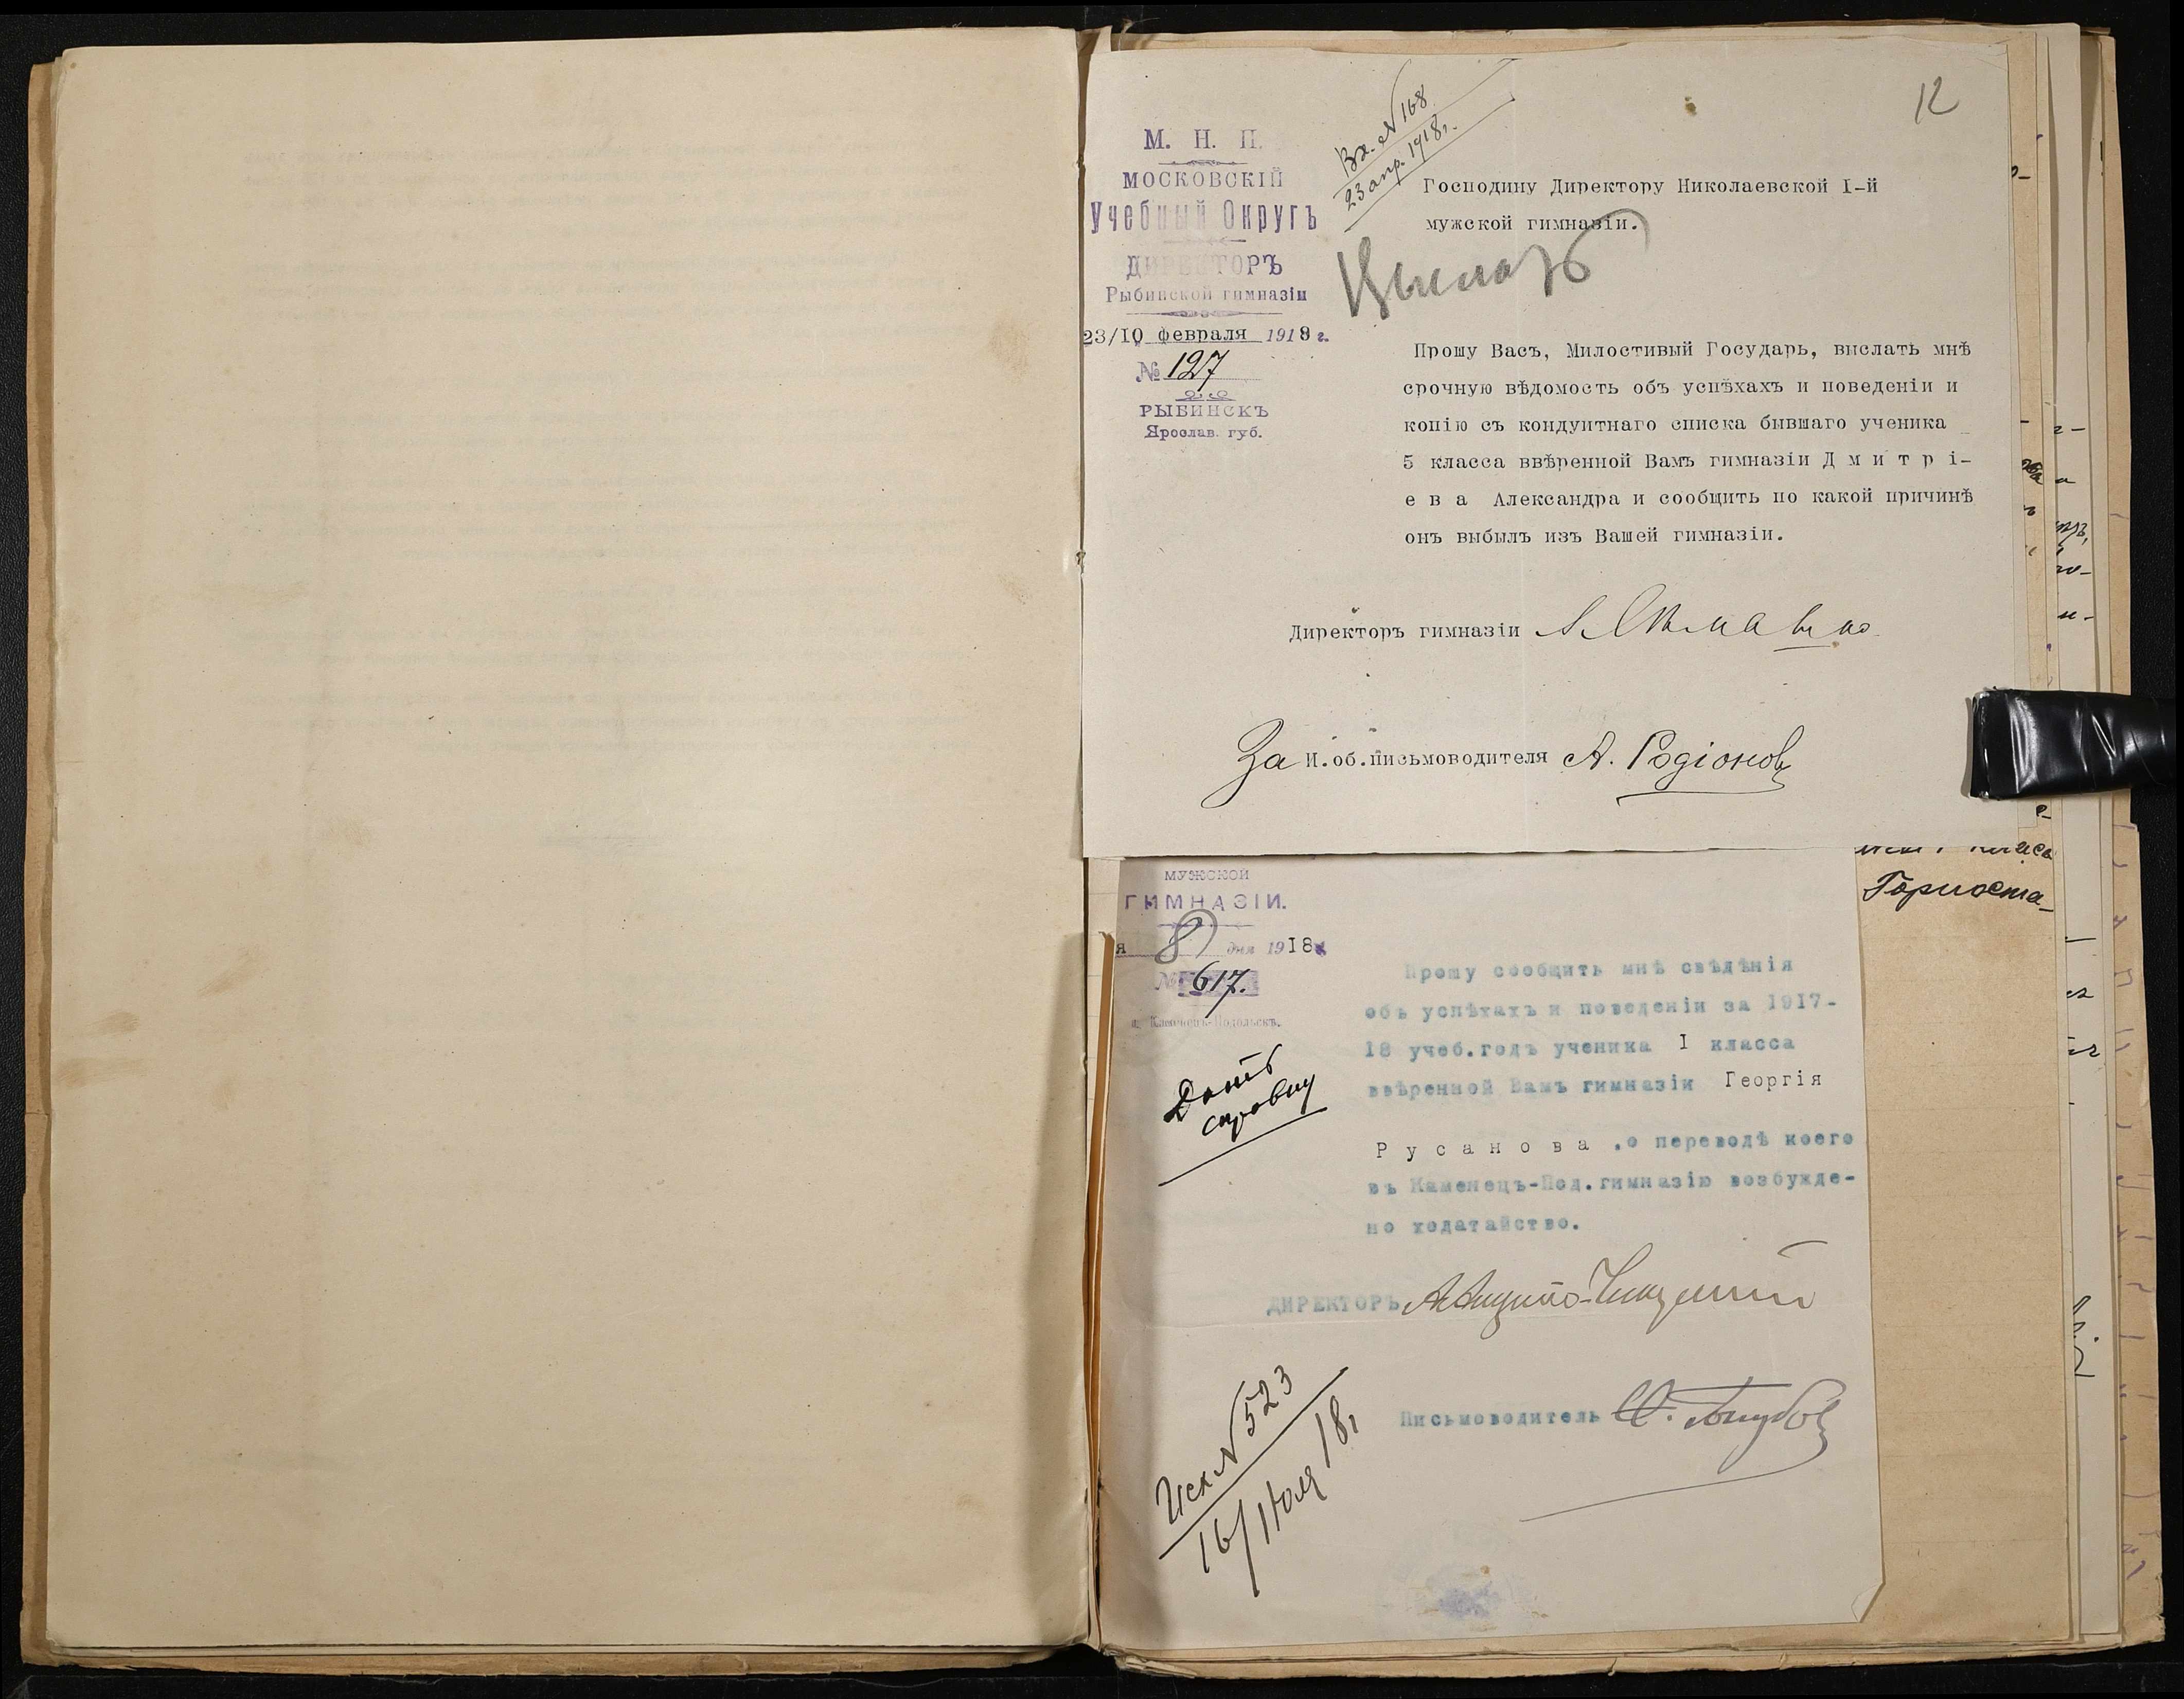 12
Вх. № 168
23 апр. 1918 г.
М. Н. П.
МОСКОВСКІЙ
Учебный Округъ
ДИРЕКТОРЪ
Рыбинской гимназіи
23/10 февраля 1918 г.
№ 127
РЫБИНСКЪ
Ярослав. губ.
Господину Директору Николаевской I-й
мужской гимназіи.
Прошу Васъ, Милостивый Государь, выслать мнѣ
срочную вѣдомость объ успѣхахъ и поведеніи и
копію съ кондуитнаго списка бывшаго ученика
5 класса ввѣренной Вамъ гимназіи Д м и т р і-
е в а Александра и сообщить по какой причинѣ
онъ выбылъ изъ Вашей гимназіи.
Директоръ гимназіи
За И.об.письмоводителя А. Родіоновъ
МУЖСКОЙ
ГИМНАЗІИ.
я 8 дня 1918 г.
№ 617.
г. Каменецъ-Подольскъ.
Дать
справку
Прошу сообщить мнѣ свѣдѣнія
объ успѣхахъ и поведеніи за 1917-
18 учеб.годъ ученика I класса
ввѣренной Вамъ гимназіи Георгія
Р у с а н о в а ,о переводѣ коего
въ Каменецъ-Под.гимназію возбужде-
но ходатайство.
ДИРЕКТОРЪ
Письмоводитель
Исх № 523
16/Июля 18 г.
Горноста-